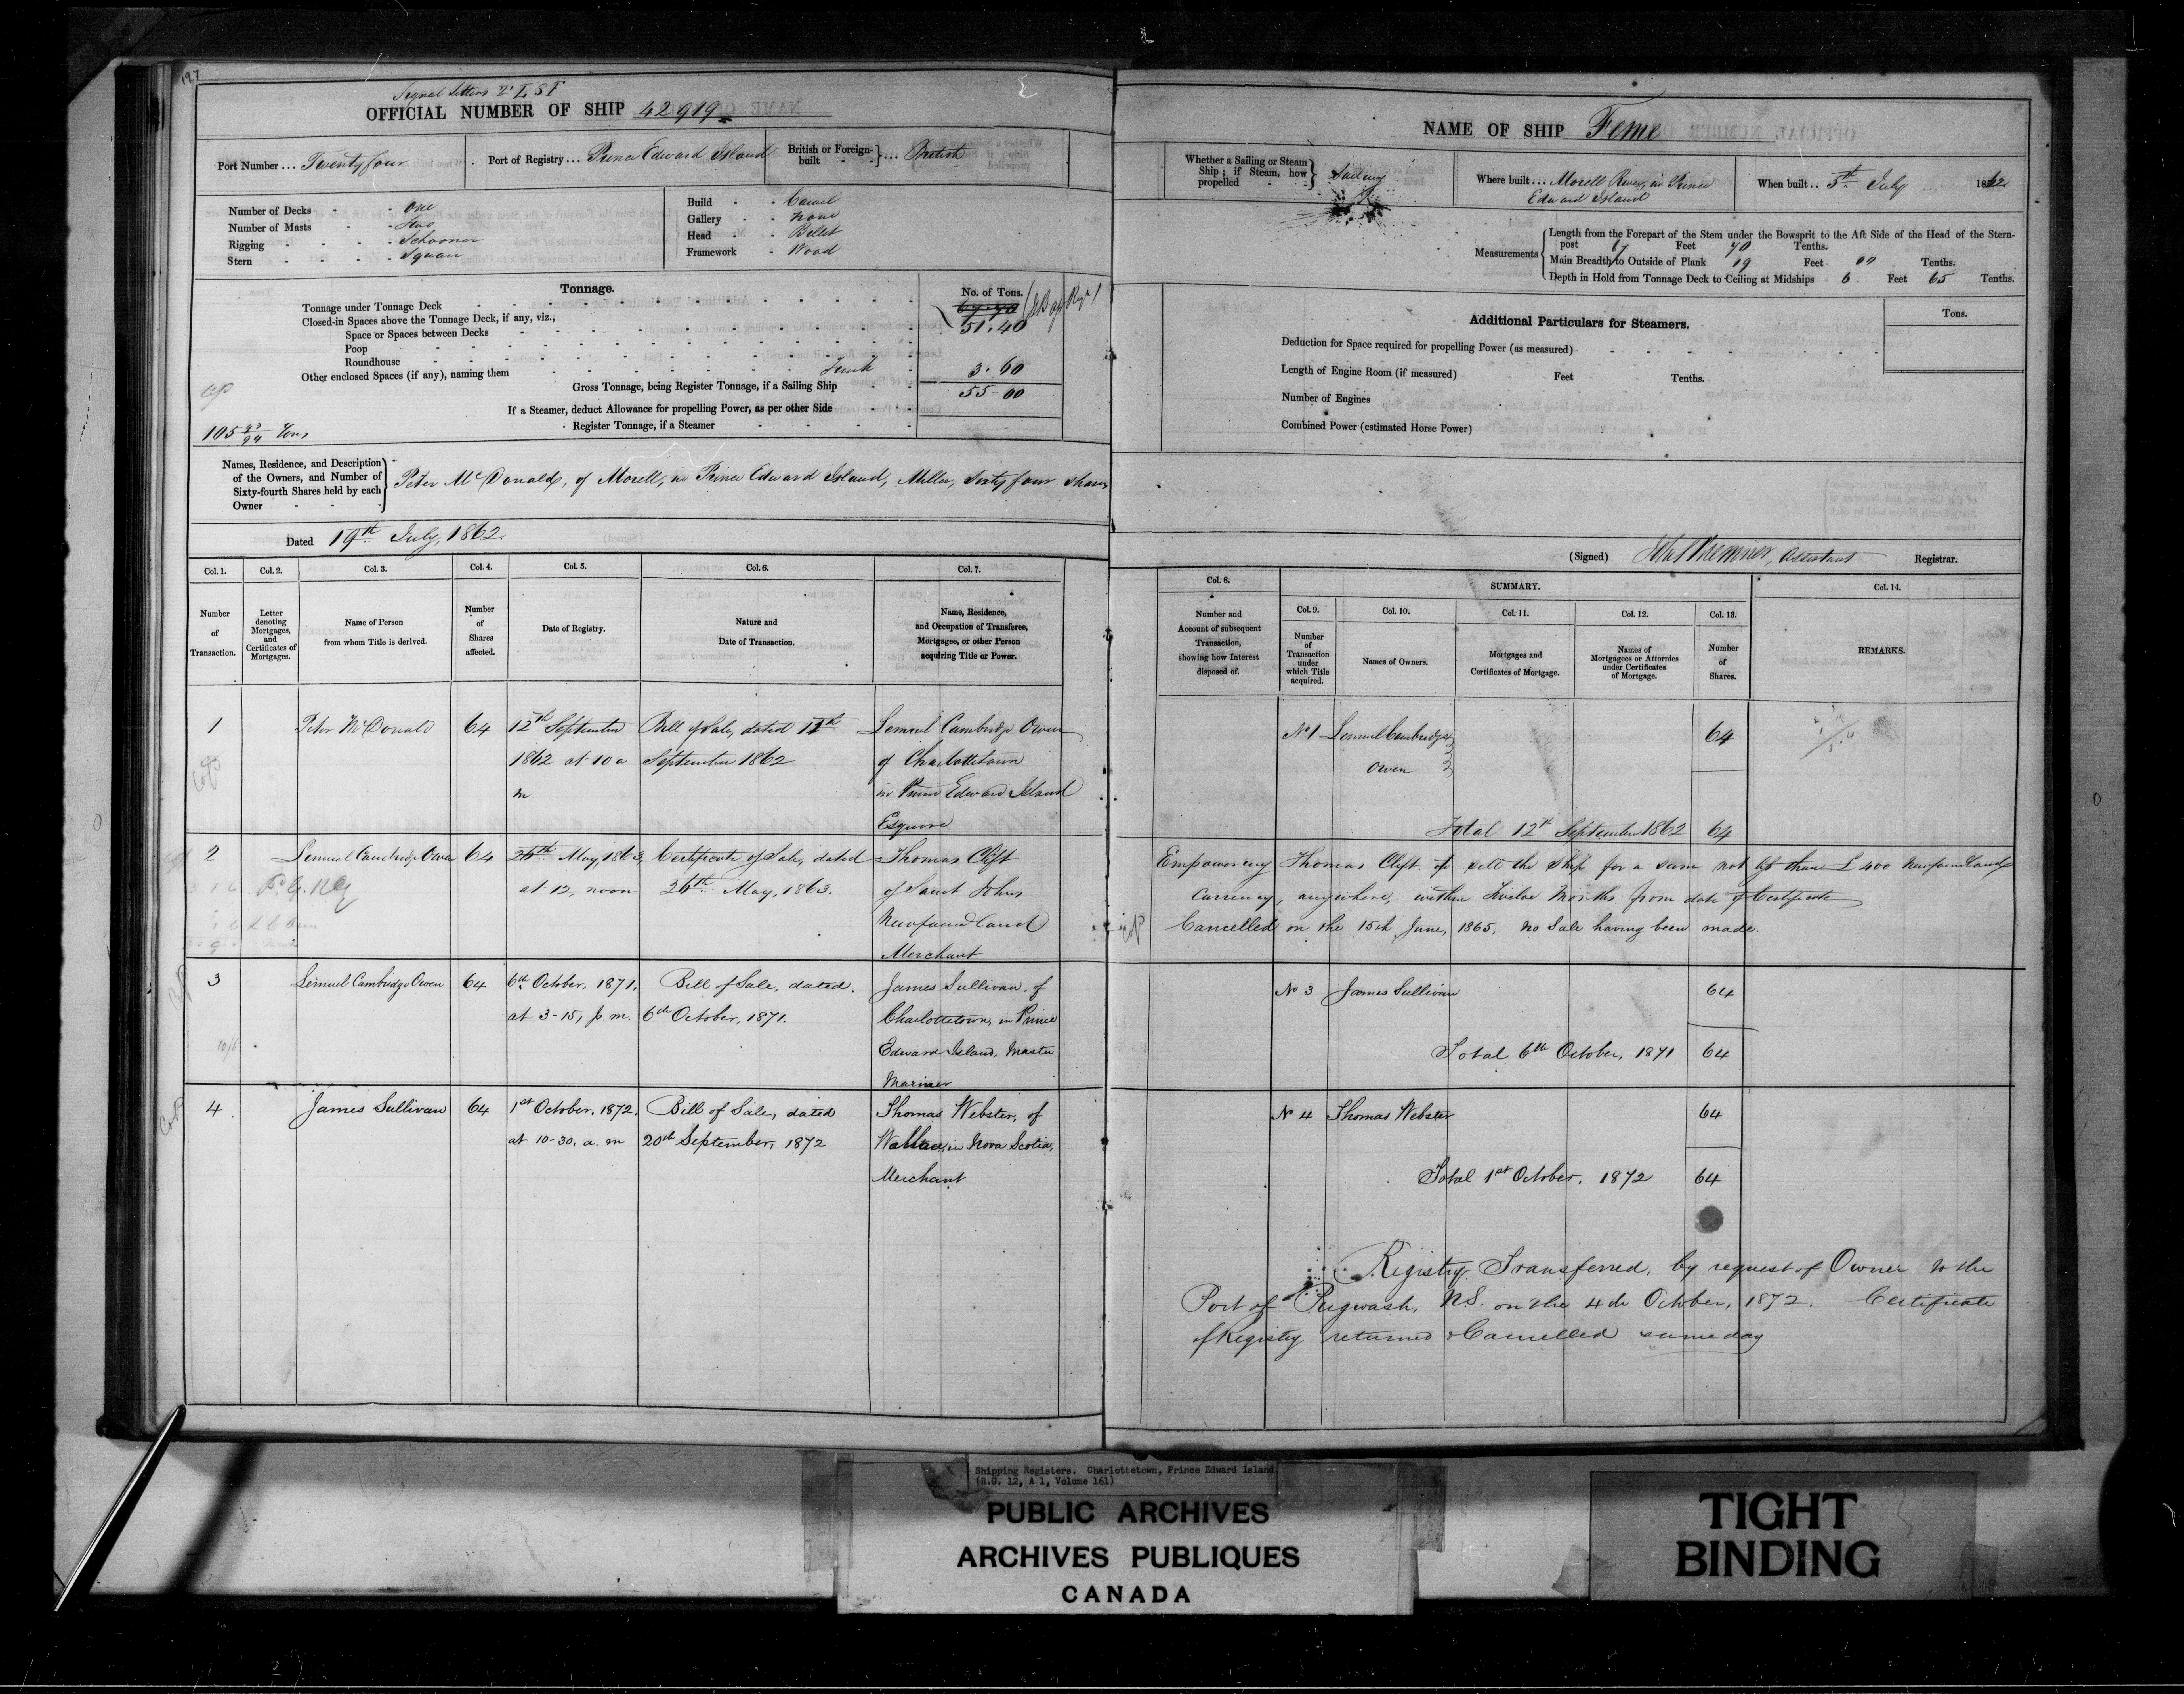 197
Signal Letters
OFFICIAL NUMBER OF SHIP 42919
Port Number ... Twenty four
Port of Registry ... Prince Edward Island
British or Foreign-built } ... British
Number of Decks - - One
Number of Masts - - Two
Rigging - - - - Schooner
Stern - - - - Square
Build - - Carvel
Gallery - - None
Head - - Billet
Framework - Wood
Tonnage.
No. of Tons.
Tonnage under Tonnage Deck
Closed-in Spaces above the Tonnage Deck, if any, viz.,
Space or Spaces between Decks 51.40
Poop
Roundhouse
Other enclosed Spaces (if any), naming them Trunk 3.60
Gross Tonnage, being Register Tonnage, if a Sailing Ship 55-00
If a Steamer, deduct Allowance for propelling Power, as per other Side
Register Tonnage, if a Steamer
105 93/94 Tons
Names, Residence, and Description of the Owners, and Number of Sixty-fourth Shares held by each Owner
Peter McDonald, of Morell, in Prince Edward Island, Miller, Sixty four shares
Dated 19th July, 1862.
Col. 1. Col. 2. Col. 3. Col. 4. Col. 5. Col. 6. Col. 7.
Number of Transaction.
Letter denoting Mortgages, and Certificates of Mortgages.
Name of Person from whom Title is derived.
Number of Shares affected.
Date of Registry.
Nature and Date of Transaction.
Name, Residence, and Occupation of Transferee, Mortgagee, or other Person acquiring Title or Power.
1 Peter McDonald 64 12th September Bill of Sale, dated 11th Lemuel Cambridge Owen
1862 at 10 a September 1862 of Charlottetown
m in Prince Edward Island
Esquire
2 Lemuel Cambridge Owen 64 26th May, 1863, Certificate of Sale, dated Thomas Clift
at 12, noon 26th May, 1863. of Saint Johns
Newfoundland
Merchant
3 Lemuel Cambridge Owen 64 6th October, 1871, Bill of Sale, dated. James Sullivan of
at 3-15, p.m. 6th October, 1871. Charlottetown, in Prince
Edward Island, Master
Mariner
4 James Sullivan 64 1st October, 1872. Bill of Sale, dated Thomas Webster, of
at 10-30, a.m 20th September, 1872 Wallace, in Nova Scotia,
Merchant
NAME OF SHIP Feme
Whether a Sailing or Steam Ship; if Steam, how propelled } Sailing
Where built ... Morell River, in Prince
Edward Island
When built .. 5th July 1862
Measurements
Length from the Forepart of the Stem under the Bowsprit to the Aft Side of the Head of the Stern-
post 67 Feet 70 Tenths.
Main Breadth to Outside of Plank 19 Feet 00 Tenths.
Depth in Hold from Tonnage Deck to Ceiling at Midships 6 Feet 65 Tenths.
Additional Particulars for Steamers.
Tons.
Deduction for Space required for propelling Power (as measured)
Length of Engine Room (if measured) Feet Tenths.
Number of Engines
Combined Power (estimated Horse Power)
(Signed) Assistant Registrar.
Col. 8. SUMMARY. Col. 14.
Col. 9. Col. 10. Col. 11. Col. 12. Col. 13.
Number and Account of subsequent Transaction, showing how Interest disposed of.
Number of Transaction under which Title acquired.
Names of Owners.
Mortgages and Certificates of Mortgage.
Names of Mortgagees or Attornies under Certificates of Mortgage.
Number of Shares.
REMARKS.
No 1 Lemuel Cambridge 64
Owen
Total 12th September 1862 64
Empowering Thomas Clift to sell the Ship for a sum not less than £400 Newfoundland
Currency, anywhere, within Twelve Months from date of Certificate
Cancelled on the 15th June, 1865, no Sale having been made.
No 3 James Sullivan 64
Total 6th October, 1871 64
No 4 Thomas Webster 64
Total 1st October, 1872 64
Registry Transferred, by request of Owner to the
Port of Pugwash, N.S. on the 4th October, 1872. Certificate
of Registry returned & Cancelled same day
Shipping Registers. Charlottetown, Prince Edward Island.
(R.G. 12, A 1, Volume 161)
PUBLIC ARCHIVES
ARCHIVES PUBLIQUES
CANADA
TIGHT
BINDING